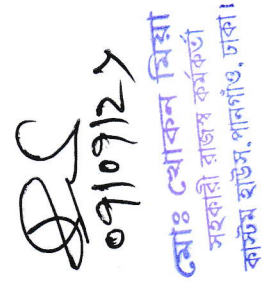 ০৭/০৭/২১
মোঃ খোকন মিয়া
সহকারী রাজস্ব কর্মকর্তা
কাস্টম হাউস, পানগাঁও, ঢাকা।